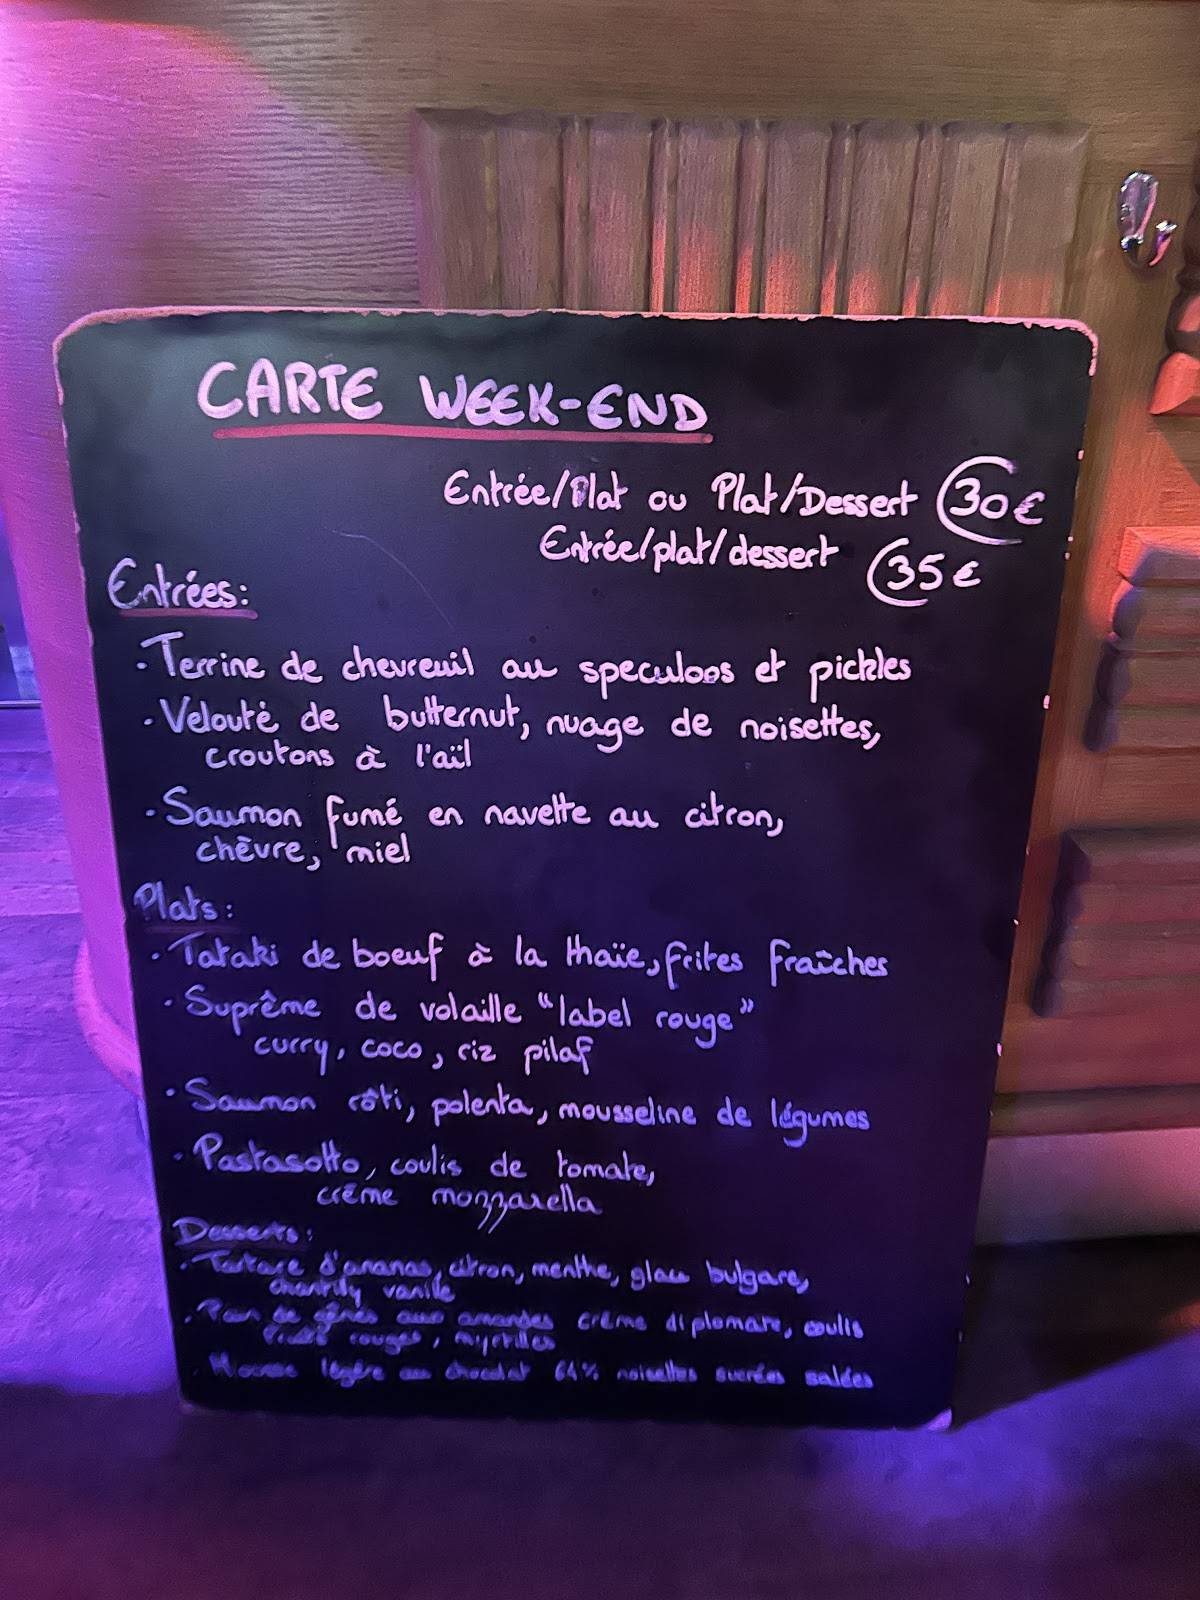 CARTE WEEK-END
Entrée/Plat ou Plat/Dessert 30€
Entrée/plat/dessert 35€
Entrées:
• Terrine de chevreuil au speculoos et pickles
• Velouté de butternut, nuage de noisettes,
croutons à l'aïl
• Saumon fumé en navette au citron,
chèvre, miel
Plats:
• Tataki de boeuf à la thaïe, frites fraîches
• Suprême de volaille "label rouge"
curry, coco, riz pilaf
• Saumon rôti, polenta, mousseline de légumes
• Pastasotto, coulis de tomate,
crème mozzarella
Desserts:
• Tartare d'ananas, citron, menthe, glace bulgare,
chantilly vanille
• Pain de gênes aux amandes crème diplomate, coulis
fruits rouges, myrtilles
• Mousse légère au chocolat 64% noisettes sucrées salées